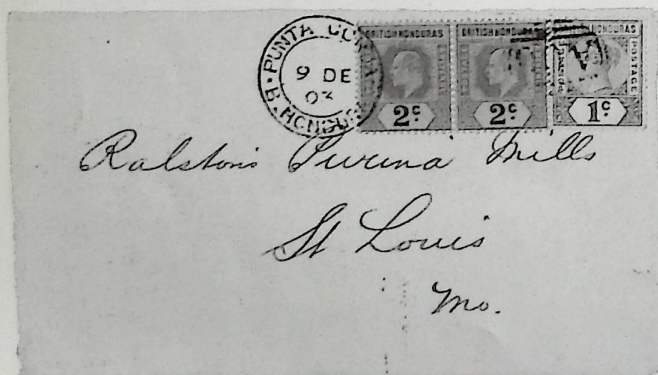 PUNTA GORDA
9 DE
03
B. HONDURAS
BRITISH HONDURAS
2c
BRITISH HONDURAS
2c
HONDURAS
POSTAGE
1c
Ralston's Purina Mills
St Louis
Mo.